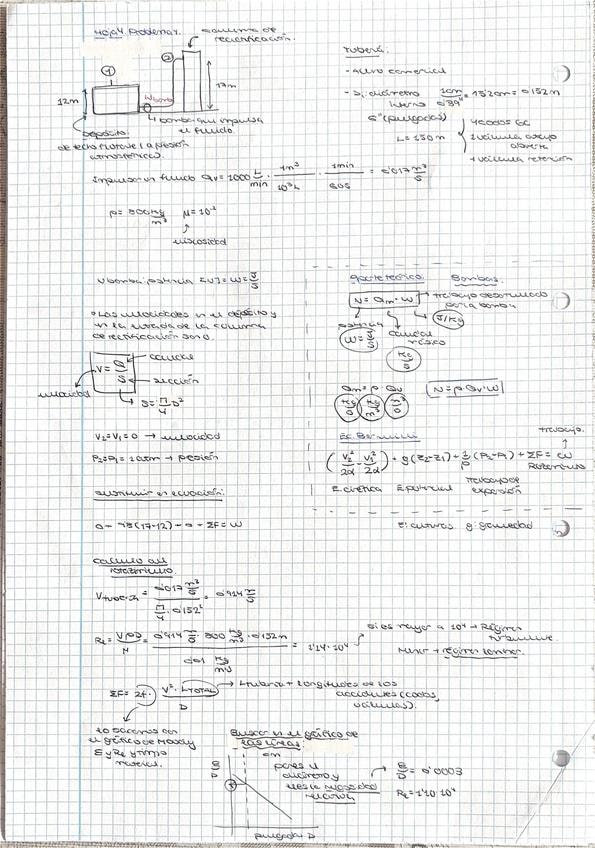 Hoja 4. Problema 1.
columna de rectificación.
①
②
12m
17m
Wbomba
bomba que impulsa
el fluido.
depósito
de techo flotante (a presión
atmosférica).
Tubería
- Acero comercial
- Di: diámetro
interno
6" (pulgadas)
= 15'2cm = 0'152m
L = 150m
4 codos 90
1 válvula retención
Impulsar un fluido Qv = 1000 L/min · 1m³/10³L · 1min/60s = 0'017 m³/s
ρ = 800 kg/m³ μ = 10⁻²
viscosidad
N bomba: potencia [N] = W = J/s
• Las velocidades en el depósito y
en la entrada de la columna
de rectificación son 0.
V = Q/S
caudal
sección
velocidad
S = π/4 D²
V₂ = V₁ = 0 → velocidad
P₂ = P₁ = 1 atm → presión
sustituir en ecuación:
0 - 9'8(17-12) - 0 - ΣF = W
Aparte teórico: Bombas.
N = Qm · W
trabajo desarrollado
por la bomba
J/kg
potencia
W = J/s
caudal
másico
kg/s
Qm = ρ Qv
kg/s kg/m³ m³/s
N = ρ Qv · W
Ec. Bernoulli
trabajo.
(V₂²/2α - V₁²/2α) + g(z₂-z₁) + 1/ρ (P₂-P₁) + ΣF = W
Rozamientos
E cinética E potencial Trabajo de
expansión
z: alturas g: gravedad
Cálculo del
rozamiento.
V = 0'017 m³/s / π/4 · 0'152² = 0'914 m/s
Re = VρD/μ = 0'914 m/s · 800 kg/m³ · 0'152m / 0'01 = 1'14·10⁴
Si es mayor a 10⁴ → Régimen
turbulento
régimen laminar.
ΣF = 2f · V² · L TOTAL / D
L tubería + longitudes de los
accidentes (codos,
válvulas).
Lo sacamos con
el gráfico de Moody
ε y Re y tipo
material.
Buscar en el gráfico de
las líneas
con
pones el
diámetro y
ves la rugosidad
relativa
ε/D = 0'0003
Re = 1'10·10⁴
ε/D
pulgadas D